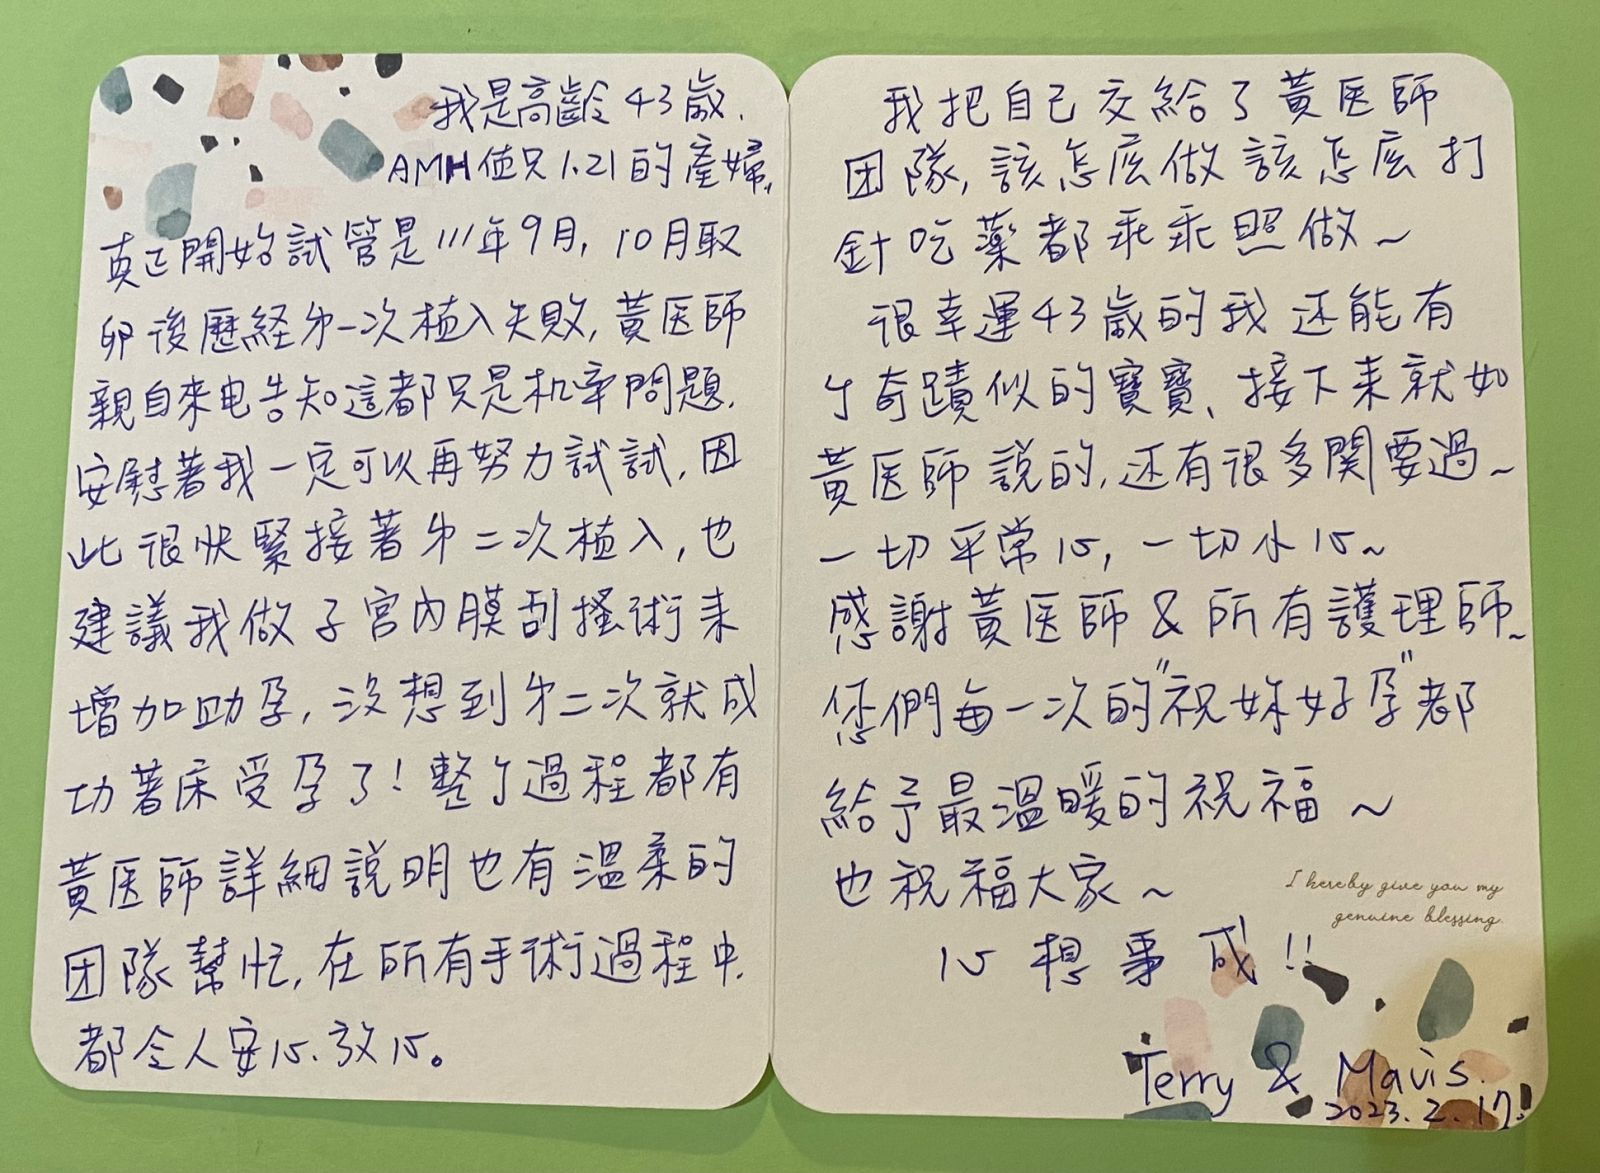 我是高齡43歲.
AMH值只1.21的產婦,
真正開始試管是111年9月, 10月取
卵後歷経第一次植入失敗, 黃医師
親自來电告知這都只是机率問題.
安慰著我一定可以再努力試試, 因
此很快緊接著第二次植入, 也
建議我做子宮內膜刮搔術来
增加助孕, 沒想到第二次就成
功著床受孕了! 整个過程都有
黃医師詳細說明也有溫柔的
团隊幫忙, 在所有手術過程中.
都令人安心、放心。
我把自己交給了黃医師
团隊, 該怎底做該怎底打
針吃藥都乖乖照做~
很幸運43歲的我还能有
个奇蹟似的寶寶、接下来就如
黃医師說的, 还有很多関要過~
一切平常心, 一切小心~
感謝黃医師 & 所有護理師~
您們每一次的"祝妳好孕"都
給予最溫暖的祝福~
也祝福大家~
心想事成!!
I hereby give you my
genuine blessing.
Terry & Mavis.
2023.2.17.